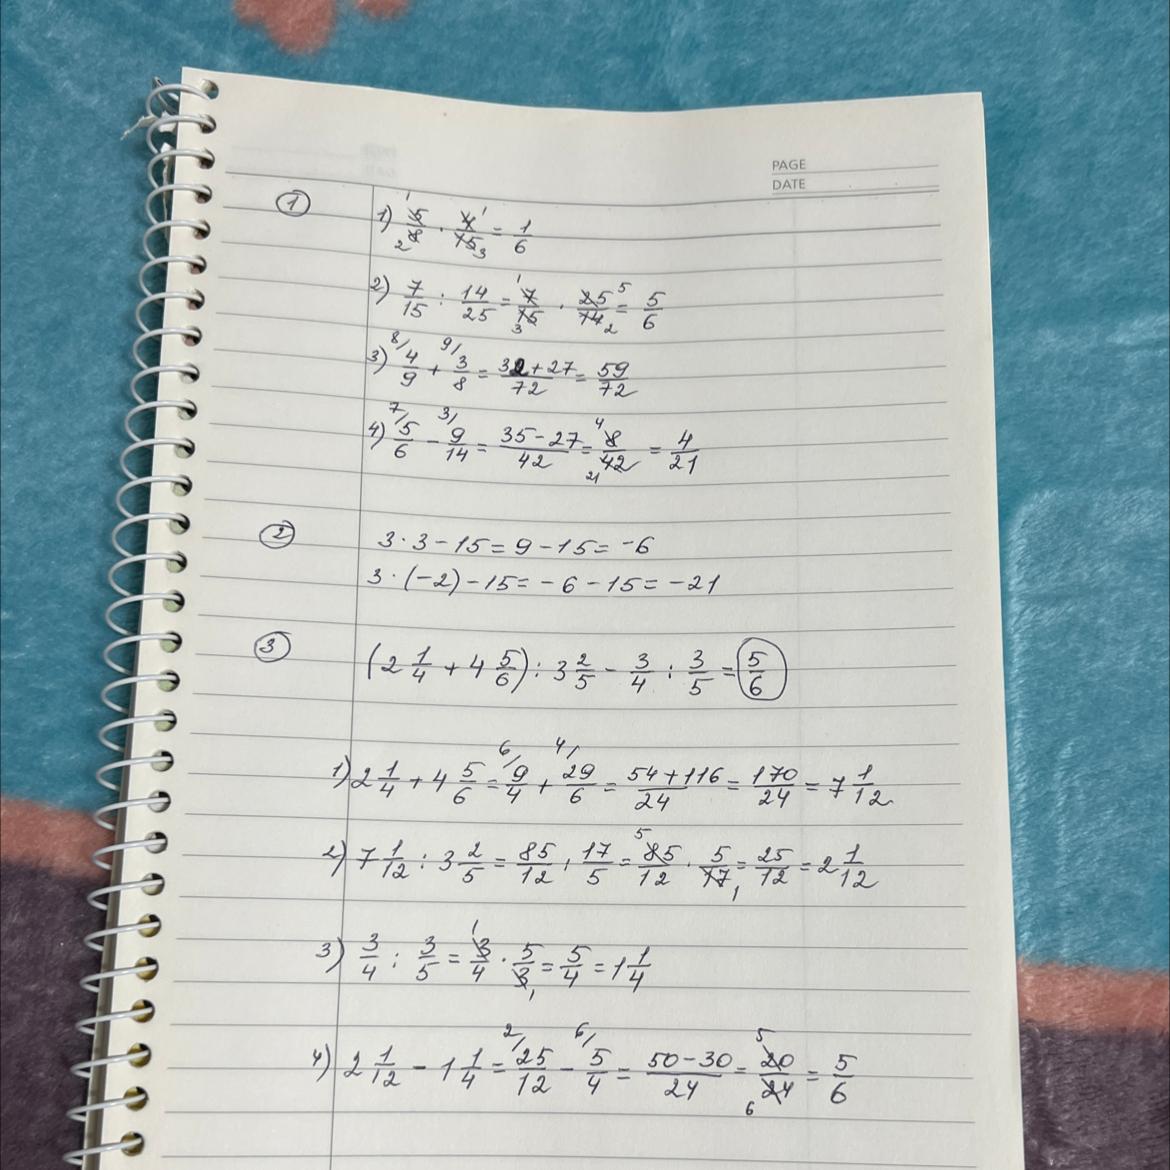 PAGE
DATE
① 1) 5/8 · 4/15 = 1/6
2) 7/15 : 14/25 = 7/15 · 25/14 = 5/6
3) 4/9 + 3/8 = 32+27/72 = 59/72
4) 5/6 − 9/14 = 35−27/42 = 8/42 = 4/21
② 3·3−15=9−15=−6
3·(−2)−15=−6−15=−21
③ (2 1/4 + 4 5/6) : 3 2/5 − 3/4 : 3/5 = 5/6
1) 2 1/4 + 4 5/6 = 9/4 + 29/6 = 54+116/24 = 170/24 = 7 1/12
2) 7 1/12 : 3 2/5 = 85/12 : 17/5 = 85/12 · 5/17 = 25/12 = 2 1/12
3) 3/4 : 3/5 = 3/4 · 5/3 = 5/4 = 1 1/4
4) 2 1/12 − 1 1/4 = 25/12 − 5/4 = 50−30/24 = 20/24 = 5/6